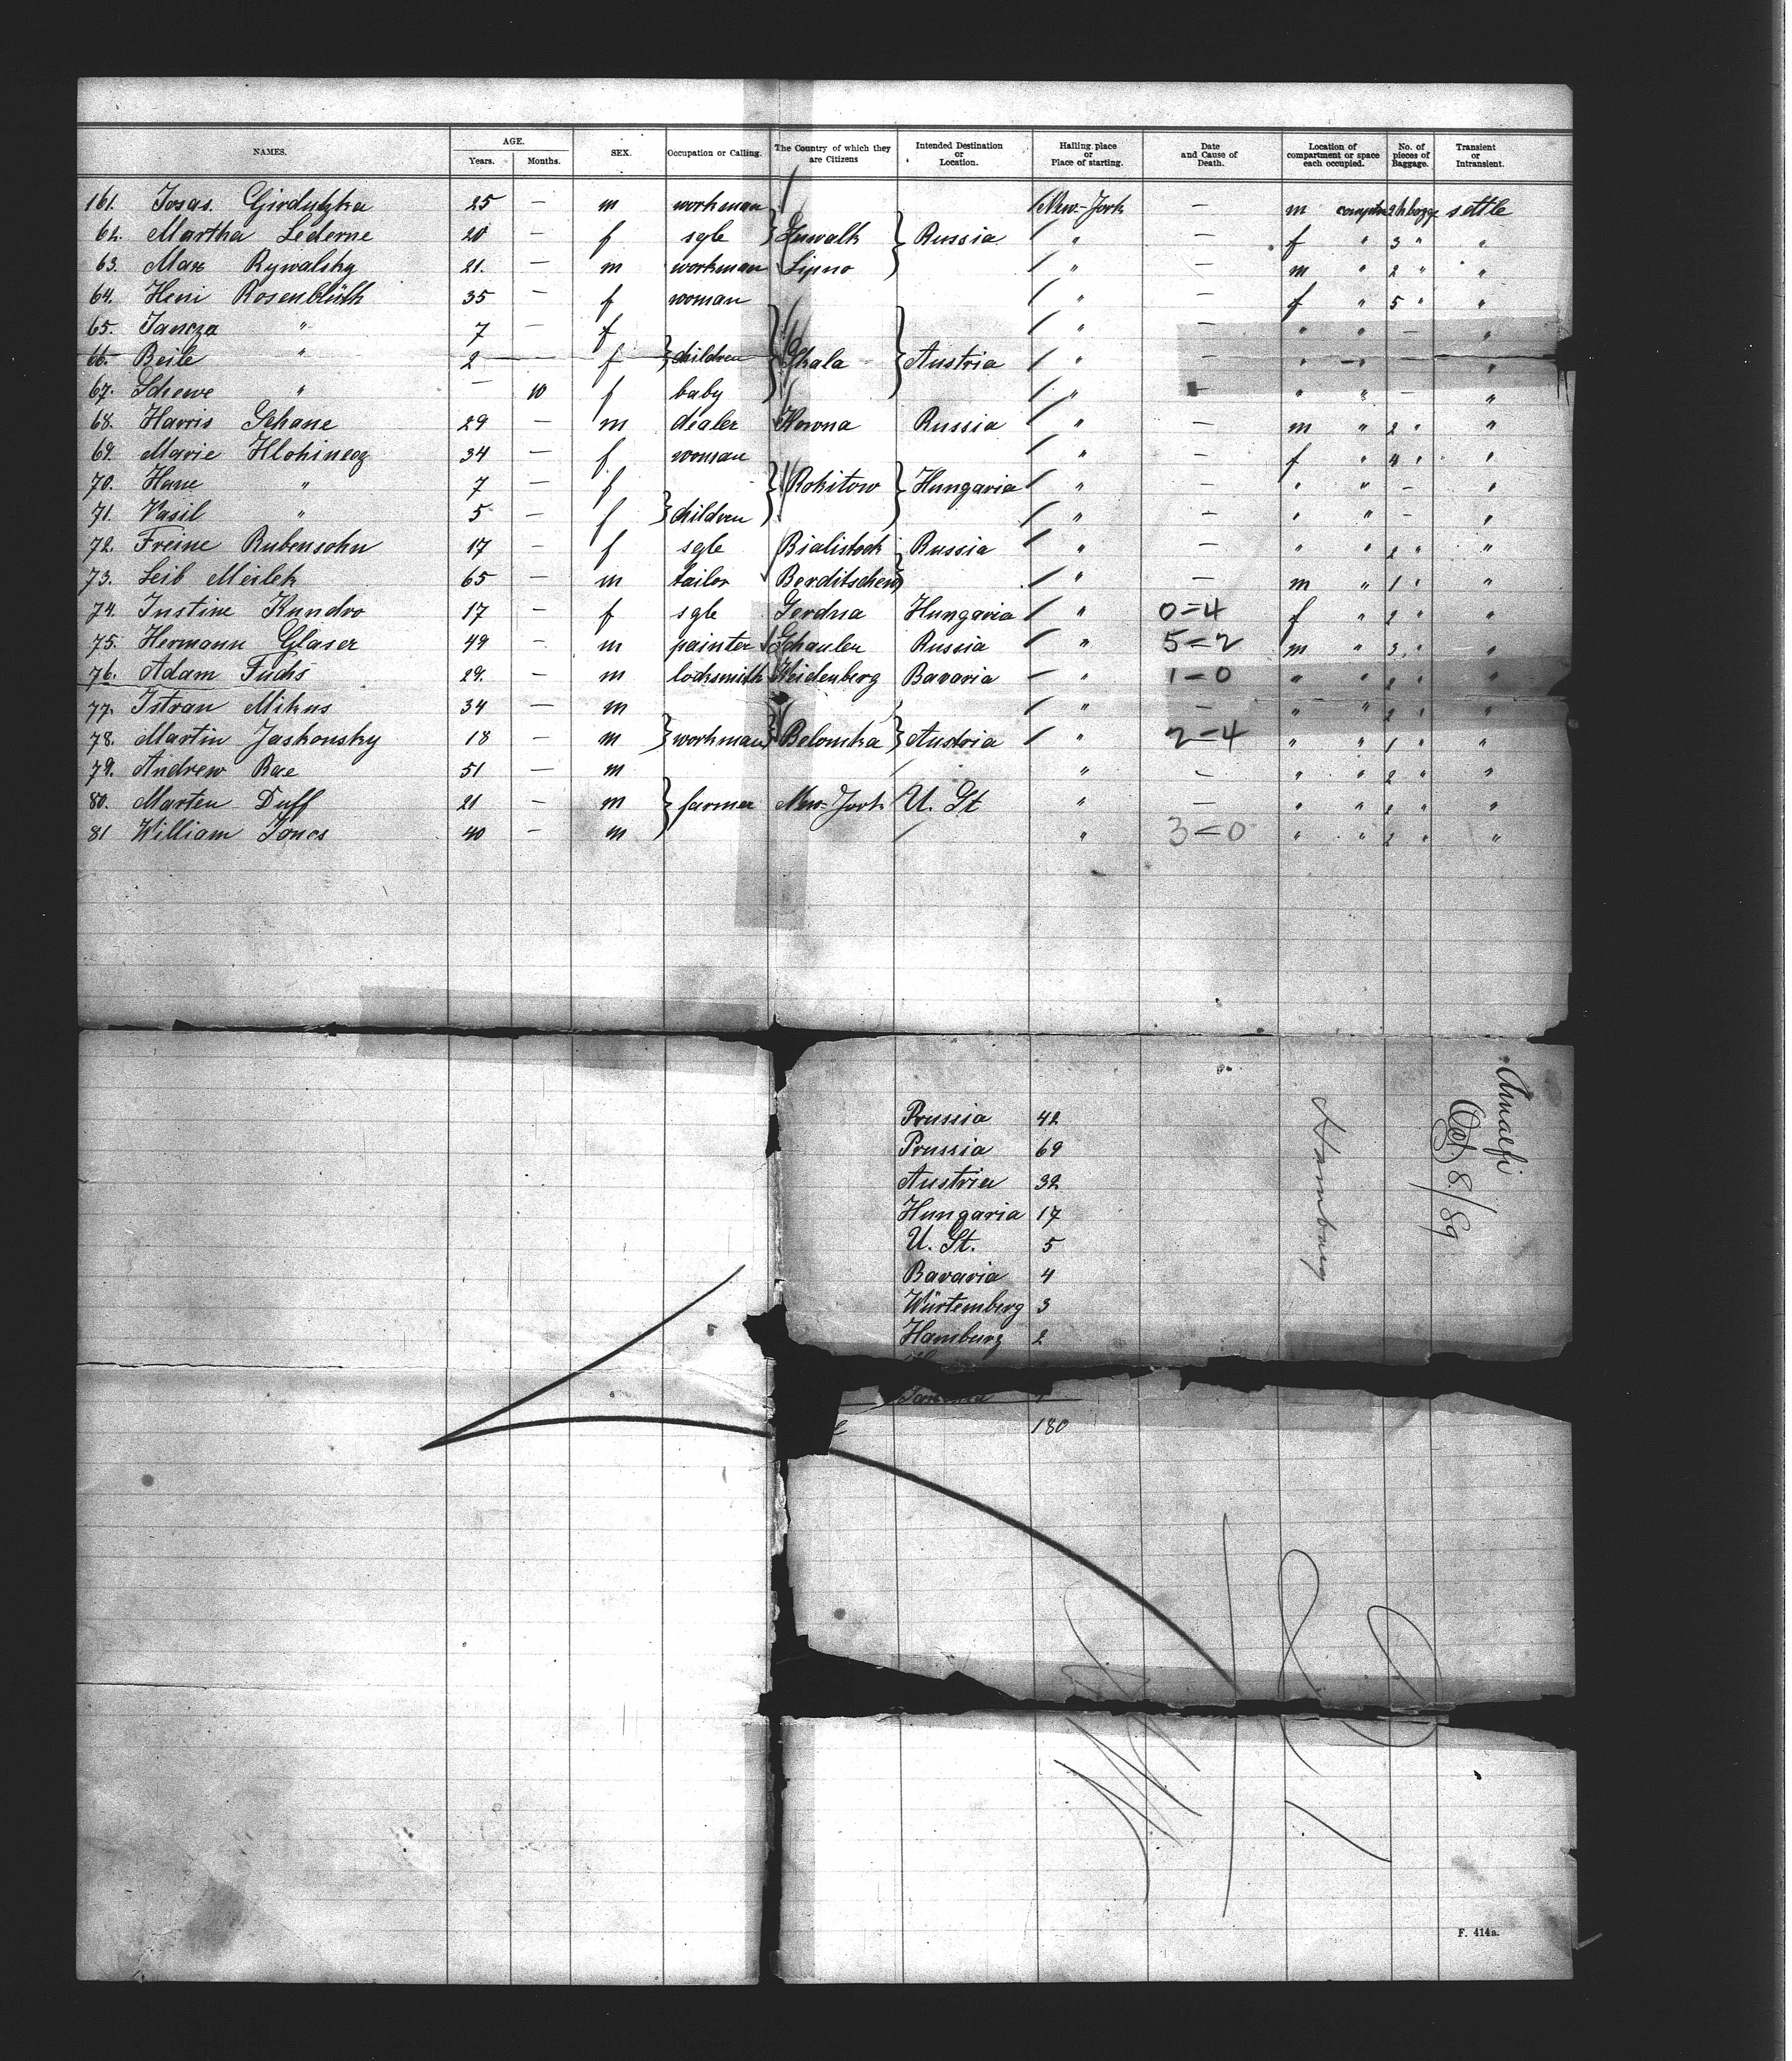 NAMES. AGE. Years. Months. SEX. Occupation or Calling. The Country of which they are Citizens Intended Destination or Location. Hailing place or Place of starting. Date and Cause of Death. Location of compartment or space each occupied. No. of pieces of Baggage. Transient or Intransient.
161. Josas Girdutzka 25 — m workman New-York — m settle
62. Martha Lederne 20 — f sgle Suwalk Russia " — f " 3 " "
63. Max Rywalsky 21. — m workman Lipno " — m " 2 " "
64. Heni Rosenblüth 35 — f woman " — f " 5 " "
65. Jancza " 7 — f " — " " — "
66. Beile " 2 — f children Skala Austria " — " — "
67. Schewe " — 10 f baby " — " " — "
68. Harris Schane 29 — m dealer Kowna Russia " — m " 2 " "
69. Marie Hlohinecz 34 — f woman " — f " 4 " "
70. Hane " 7 — f Rokitow Hungaria " — " " — "
71. Vasil " 5 — f children " — " " — "
72. Freine Rubensohn 17 — f sgle Bialistock Russia " — " " 2 " "
73. Leib Meilek 65 — m tailor Berditschew " — m " 1 " "
74. Justine Kundro 17 — f sgle Gerdna Hungaria " 0=4 f " 2 " "
75. Hermann Glaser 49 — m painter Schaulen Russia " 5=2 m " 3 " "
76. Adam Fuchs 29. — m locksmith Weidenberg Bavaria " 1-0 " " 2 " "
77. Istvan Mikus 34 — m " — " " 2 " "
78. Martin Jaskonsky 18 — m workman Belomka Austria " 2=4 " " 1 " "
79. Andrew Rae 51 — m " — " " 2 " "
80. Marten Duff 21 — m farmer New-York U. St " — " " 2 " "
81 William Jones 40 — m " 3=0 " " 2 " "
Amalfi
Oct 8/89
Hamburg
Prussia 42
Prussia 69
Austria 32
Hungaria 17
U. St. 5
Bavaria 4
Würtemberg 3
Hamburg 2
180
F. 414a.